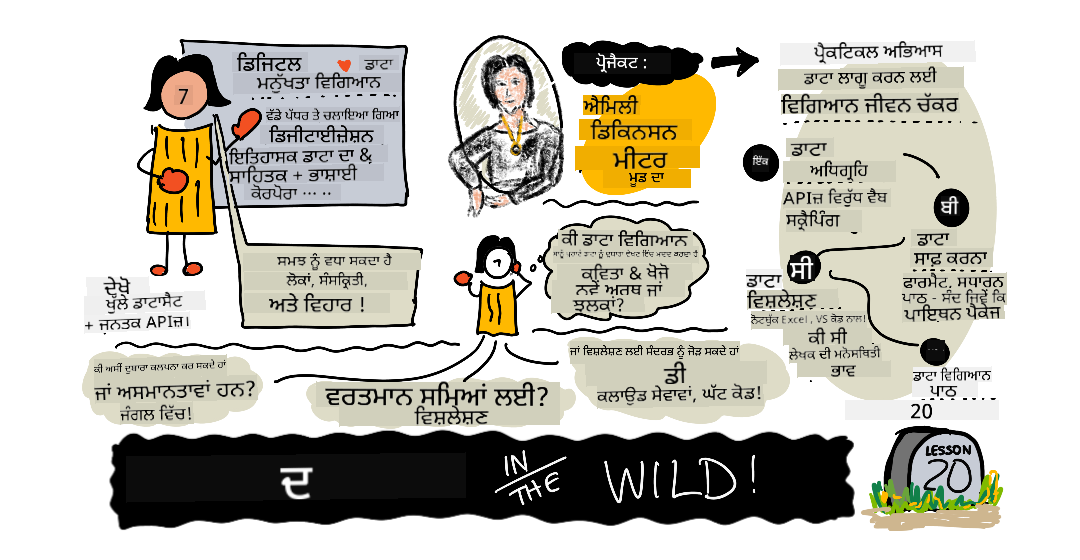 7
ਡਿਜਿਟਲ ਡਾਟਾ
ਮਨੁੱਖਤਾ ਵਿਗਿਆਨ
ਵੱਡੇ ਪੱਧਰ ਤੇ ਚਲਾਇਆ ਗਿਆ
ਡਿਜੀਟਾਈਜ਼ੇਸ਼ਨ
ਇਤਿਹਾਸਕ ਡਾਟਾ ਦਾ &
ਸਾਹਿਤਕ + ਭਾਸ਼ਾਈ
ਕੋਰਪੋਰਾ ... ..
ਸਮਝ ਨੂੰ ਵਧਾ ਸਕਦਾ ਹੈ
ਲੋਕਾਂ, ਸੰਸਕ੍ਰਿਤੀ,
ਅਤੇ ਵਿਹਾਰ !
ਦੇਖੋ
ਖੁੱਲੇ ਡਾਟਾਸੈਟ
+ ਜਨਤਕ APIਜ਼।
ਪ੍ਰੋਜੈਕਟ :
ਐਮਿਲੀ
ਡਿਕਿਨਸਨ
ਮੀਟਰ
ਮੂਡ ਦਾ
ਕੀ ਡਾਟਾ ਵਿਗਿਆਨ
ਕਵਿਤਾ & ਖੋਜੋ
ਨਵੇਂ ਅਰਥ ਜਾਂ
ਝਲਕਾਂ?
ਪ੍ਰੈਕਟਿਕਲ ਅਭਿਆਸ
ਡਾਟਾ ਲਾਗੂ ਕਰਨ ਲਈ
ਵਿਗਿਆਨ ਜੀਵਨ ਚੱਕਰ
ਇੱਕ
ਡਾਟਾ
ਅਧਿਗ੍ਰਹਿ
APIਜ਼ ਵਿਰੁੱਧ ਵੈਬ
ਸਕ੍ਰੈਪਿੰਗ
ਬੀ
ਡਾਟਾ
ਸਾਫ਼ ਕਰਨਾ
ਫਾਰਮੈਟ, ਸਧਾਰਨ
ਪਾਠ - ਸੰਦ ਜਿਵੇਂ ਕਿ
ਪਾਇਥਨ ਪੈਕੇਜ
ਸੀ
ਡਾਟਾ
ਵਿਸ਼ਲੇਸ਼ਣ
ਨੋਟਬੁੱਕ Excel , VS ਕੋਡ ਨਾਲ!
ਕੀ ਸੀ
ਲੇਖਕ ਦੀ ਮਨੋਸਥਿਤੀ
ਭਾਵ
ਡਾਟਾ ਵਿਗਿਆਨ
ਪਾਠ
20
ਕੀ ਅਸੀਂ ਦੁਬਾਰਾ ਕਲਪਨਾ ਕਰ ਸਕਦੇ ਹਾਂ
ਜਾਂ ਅਸਮਾਨਤਾਵਾਂ ਹਨ?
ਜੰਗਲ ਵਿੱਚ!
ਵਰਤਮਾਨ ਸਮਿਆਂ ਲਈ?
ਵਿਸ਼ਲੇਸ਼ਣ
ਜਾਂ ਵਿਸ਼ਲੇਸ਼ਣ ਲਈ ਸੰਦਰਭ ਨੂੰ ਜੋੜ ਸਕਦੇ ਹਾਂ
ਡੀ
ਕਲਾਉਡ ਸੇਵਾਵਾਂ, ਘੱਟ ਕੋਡ!
ਦ
IN
THE
WILD!
LESSON
20